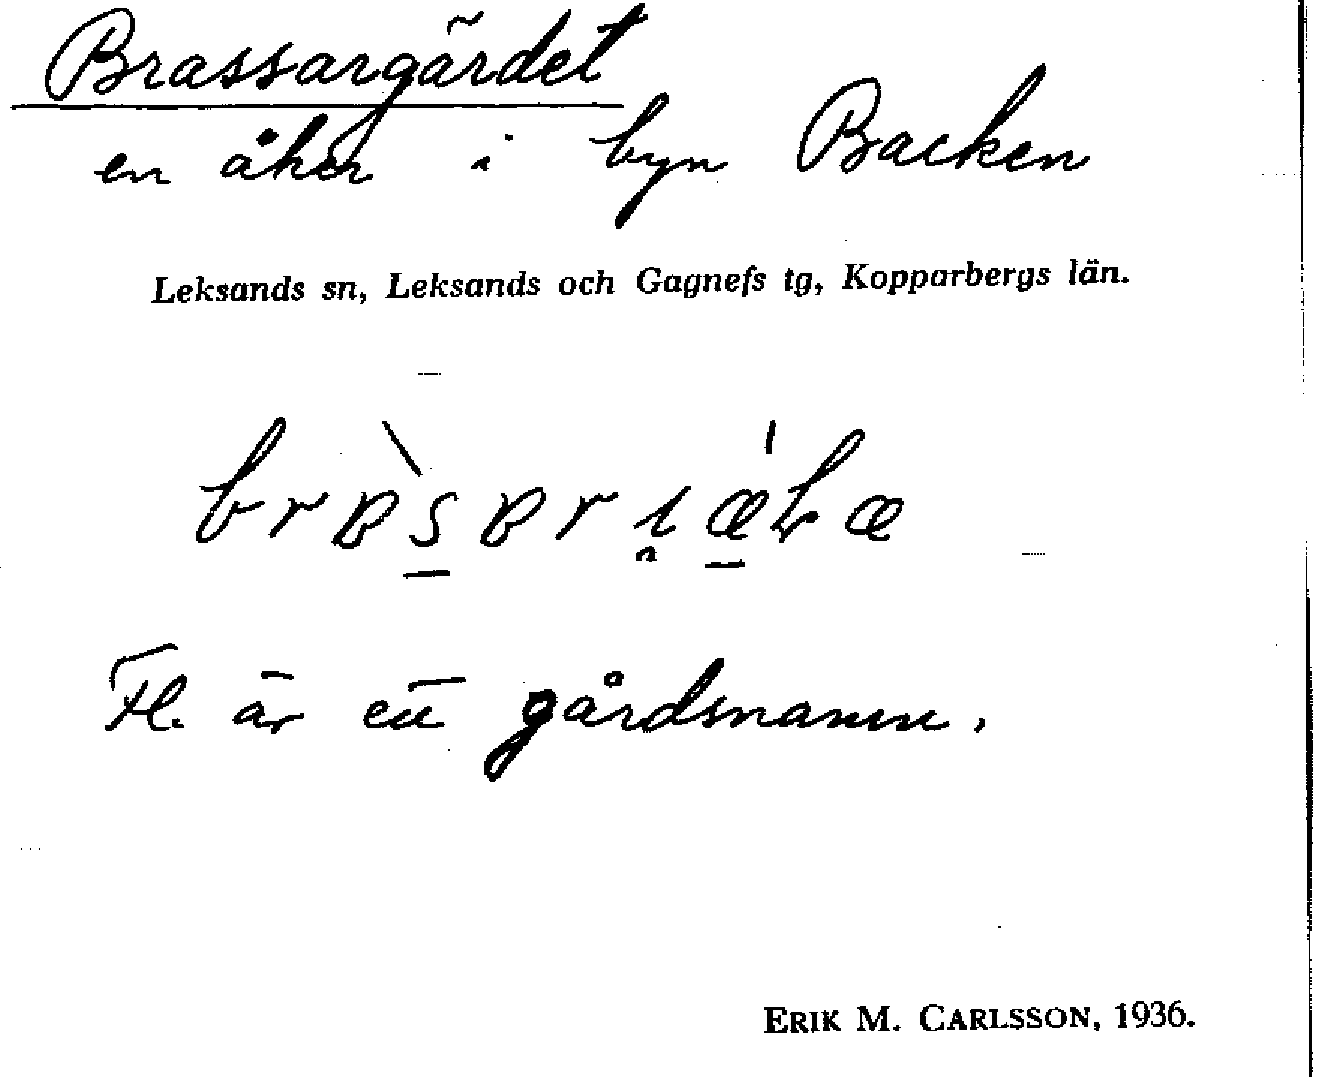 Brassargärdet
en åker i byn Backen
Leksands sn, Leksands och Gagnefs tg, Kopparbergs län.
Fl. är ett gårdsnamn.
ERIK M. CARLSSON, 1936.